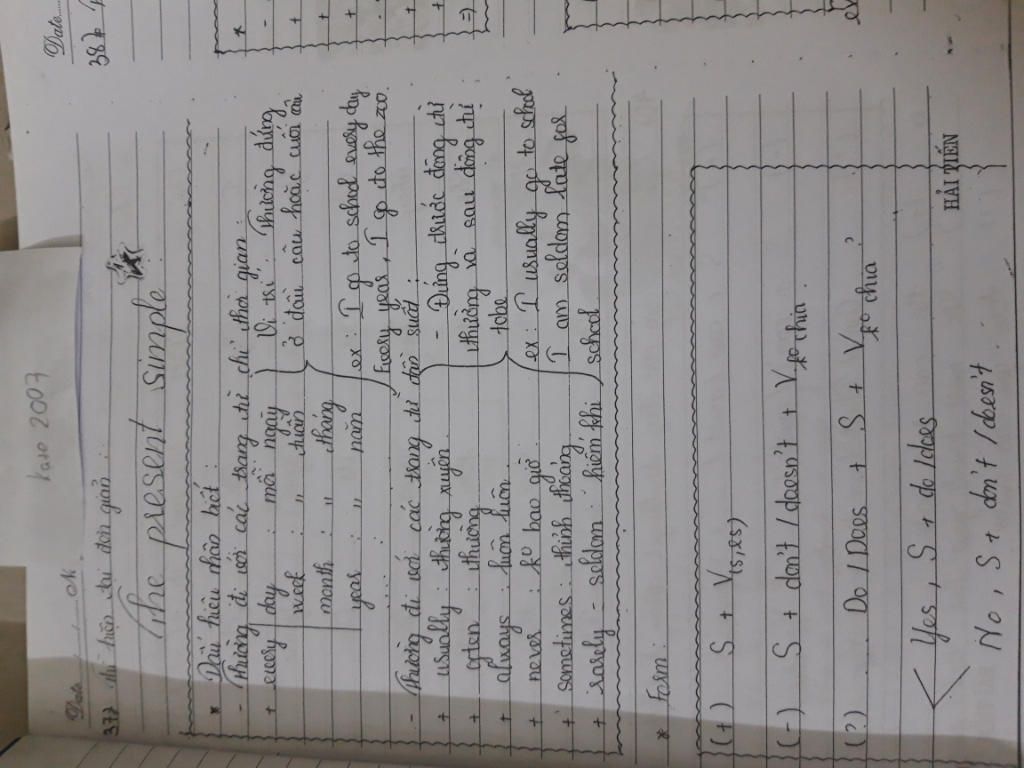 kaso 2007
Date No
377 thì hiện tại đơn giản :
The present simple
* Dấu hiệu nhận biết :
- Thường đi với các trạng từ chỉ thời gian :
+ every day : mỗi ngày
week : " tuần
month : " tháng
year : " năm
....
Vị trí : Thường đứng
ở đầu câu hoặc cuối câu
ex : I go to school every day
Every year, I go to the zoo.
- Thường đi với các trạng từ tần suất :
+ usually : thường xuyên
+ often : thường
+ always : luôn luôn
+ never : k° bao giờ
+ sometimes : thỉnh thoảng
+ rarely - seldom : hiếm khi
- Đứng trước động từ
thường và sau động từ
tobe
ex : I usually go to school
I am seldom late for
school
* Form :
(+) S + V(s, es)
(-) S + don't / doesn't + V k° chia.
(?) Do / Does + S + V k° chia ?
Yes, S + do / does
No, S + don't / doesn't
HẢI TIẾN
Date
387